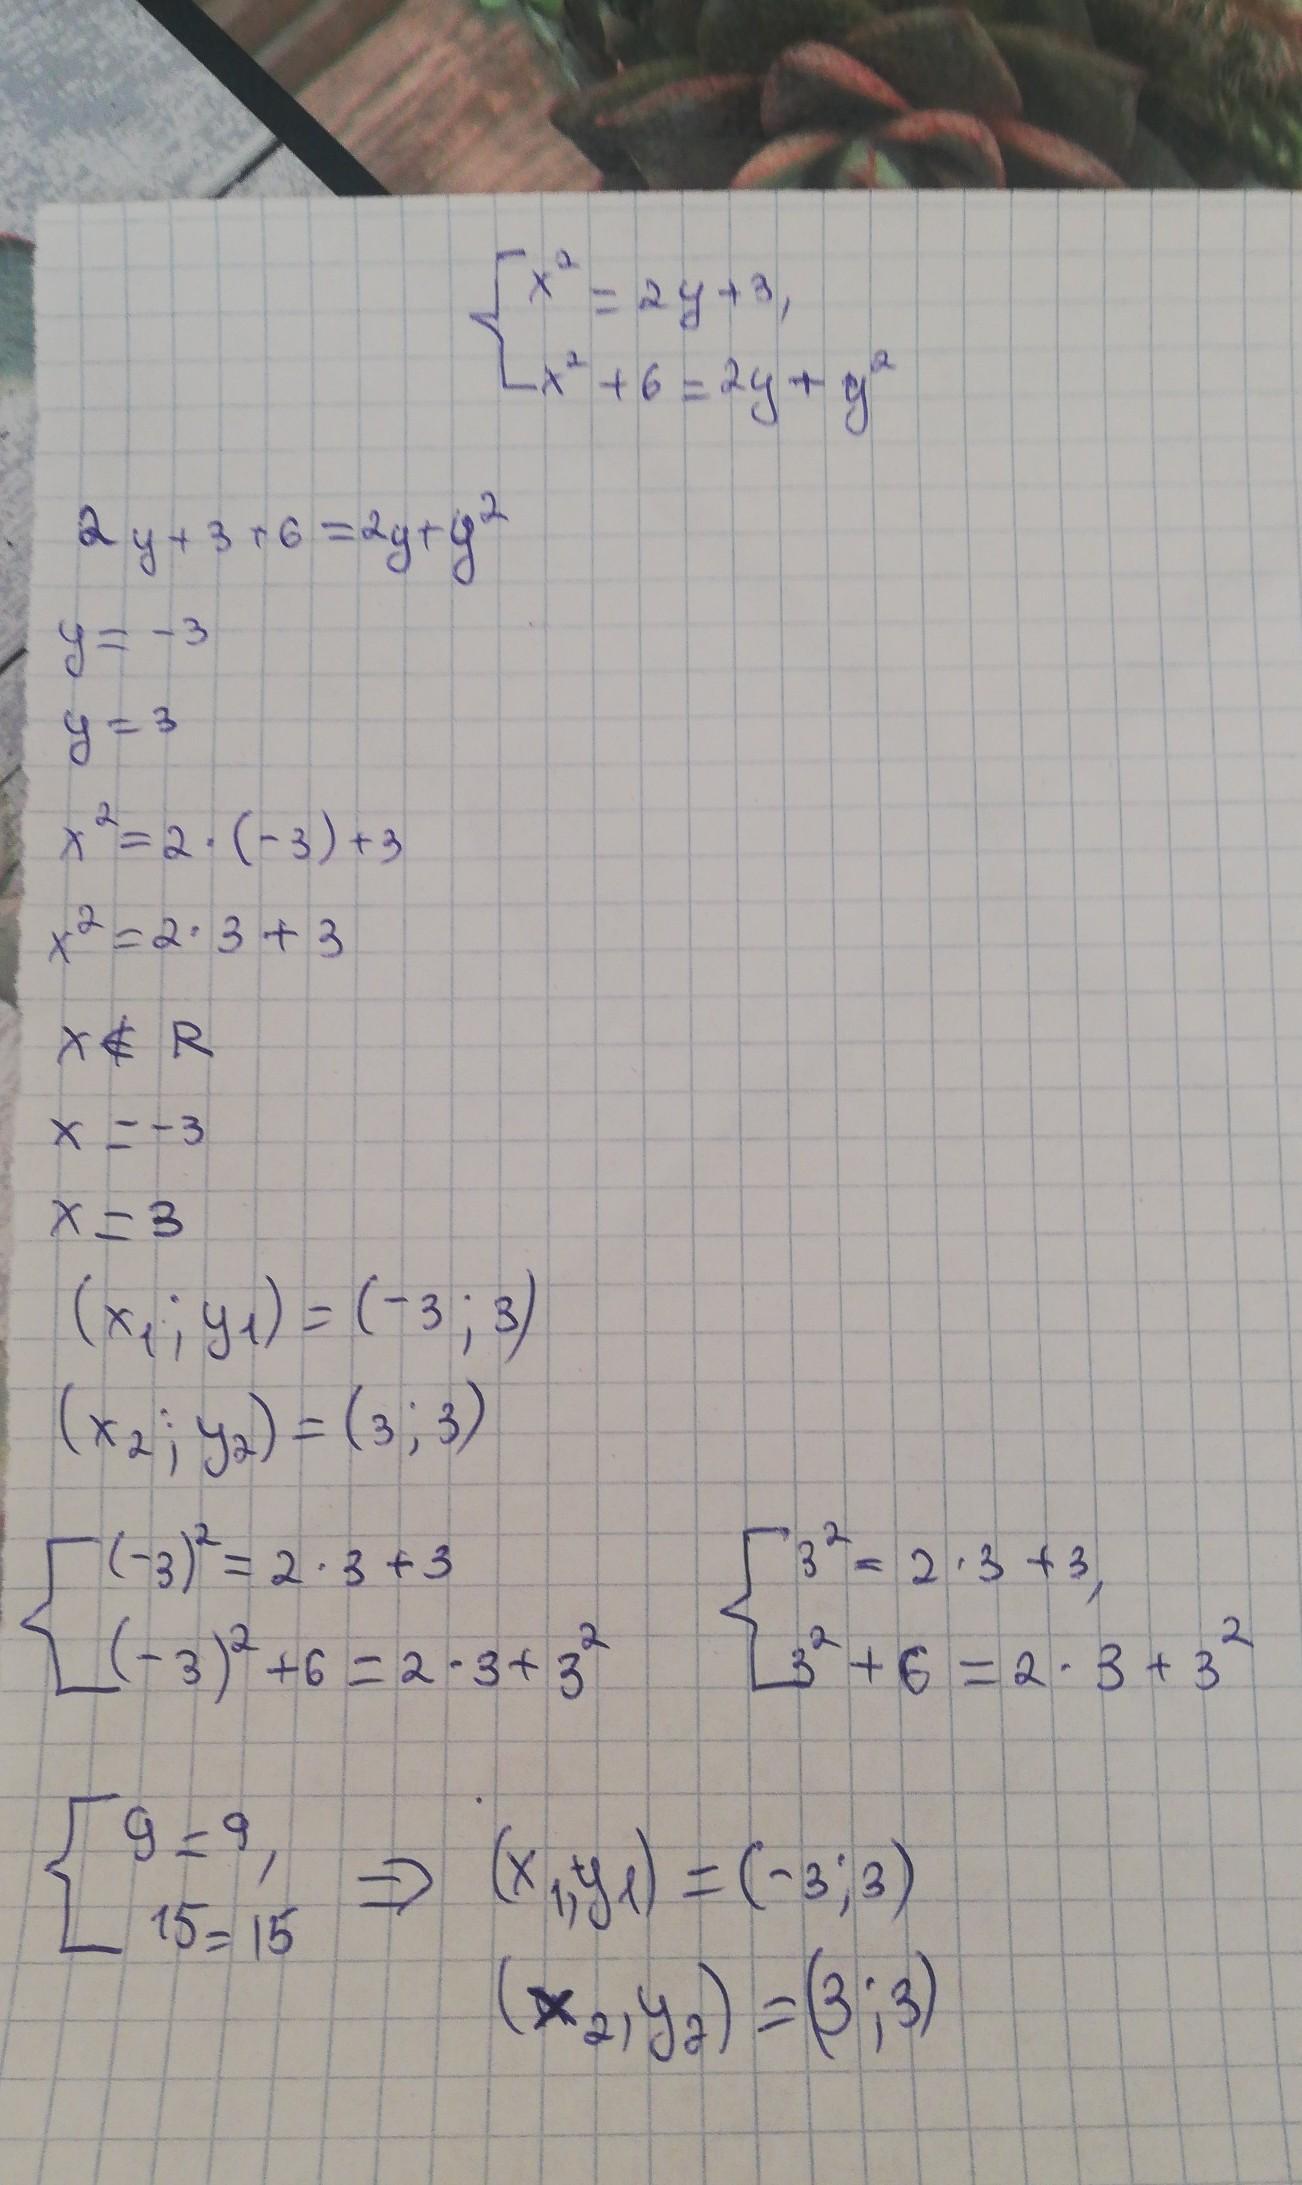 { x² = 2y + 3,
x² + 6 = 2y + y²
2y + 3 + 6 = 2y + y²
y = -3
y = 3
x² = 2 · (-3) + 3
x² = 2 · 3 + 3
x ∉ R
x = -3
x = 3
(x₁; y₁) = (-3; 3)
(x₂; y₂) = (3; 3)
{ (-3)² = 2 · 3 + 3
(-3)² + 6 = 2 · 3 + 3²
{ 3² = 2 · 3 + 3,
3² + 6 = 2 · 3 + 3²
{ 9 = 9,
15 = 15
⇒ (x₁, y₁) = (-3; 3)
(x₂, y₂) = (3; 3)